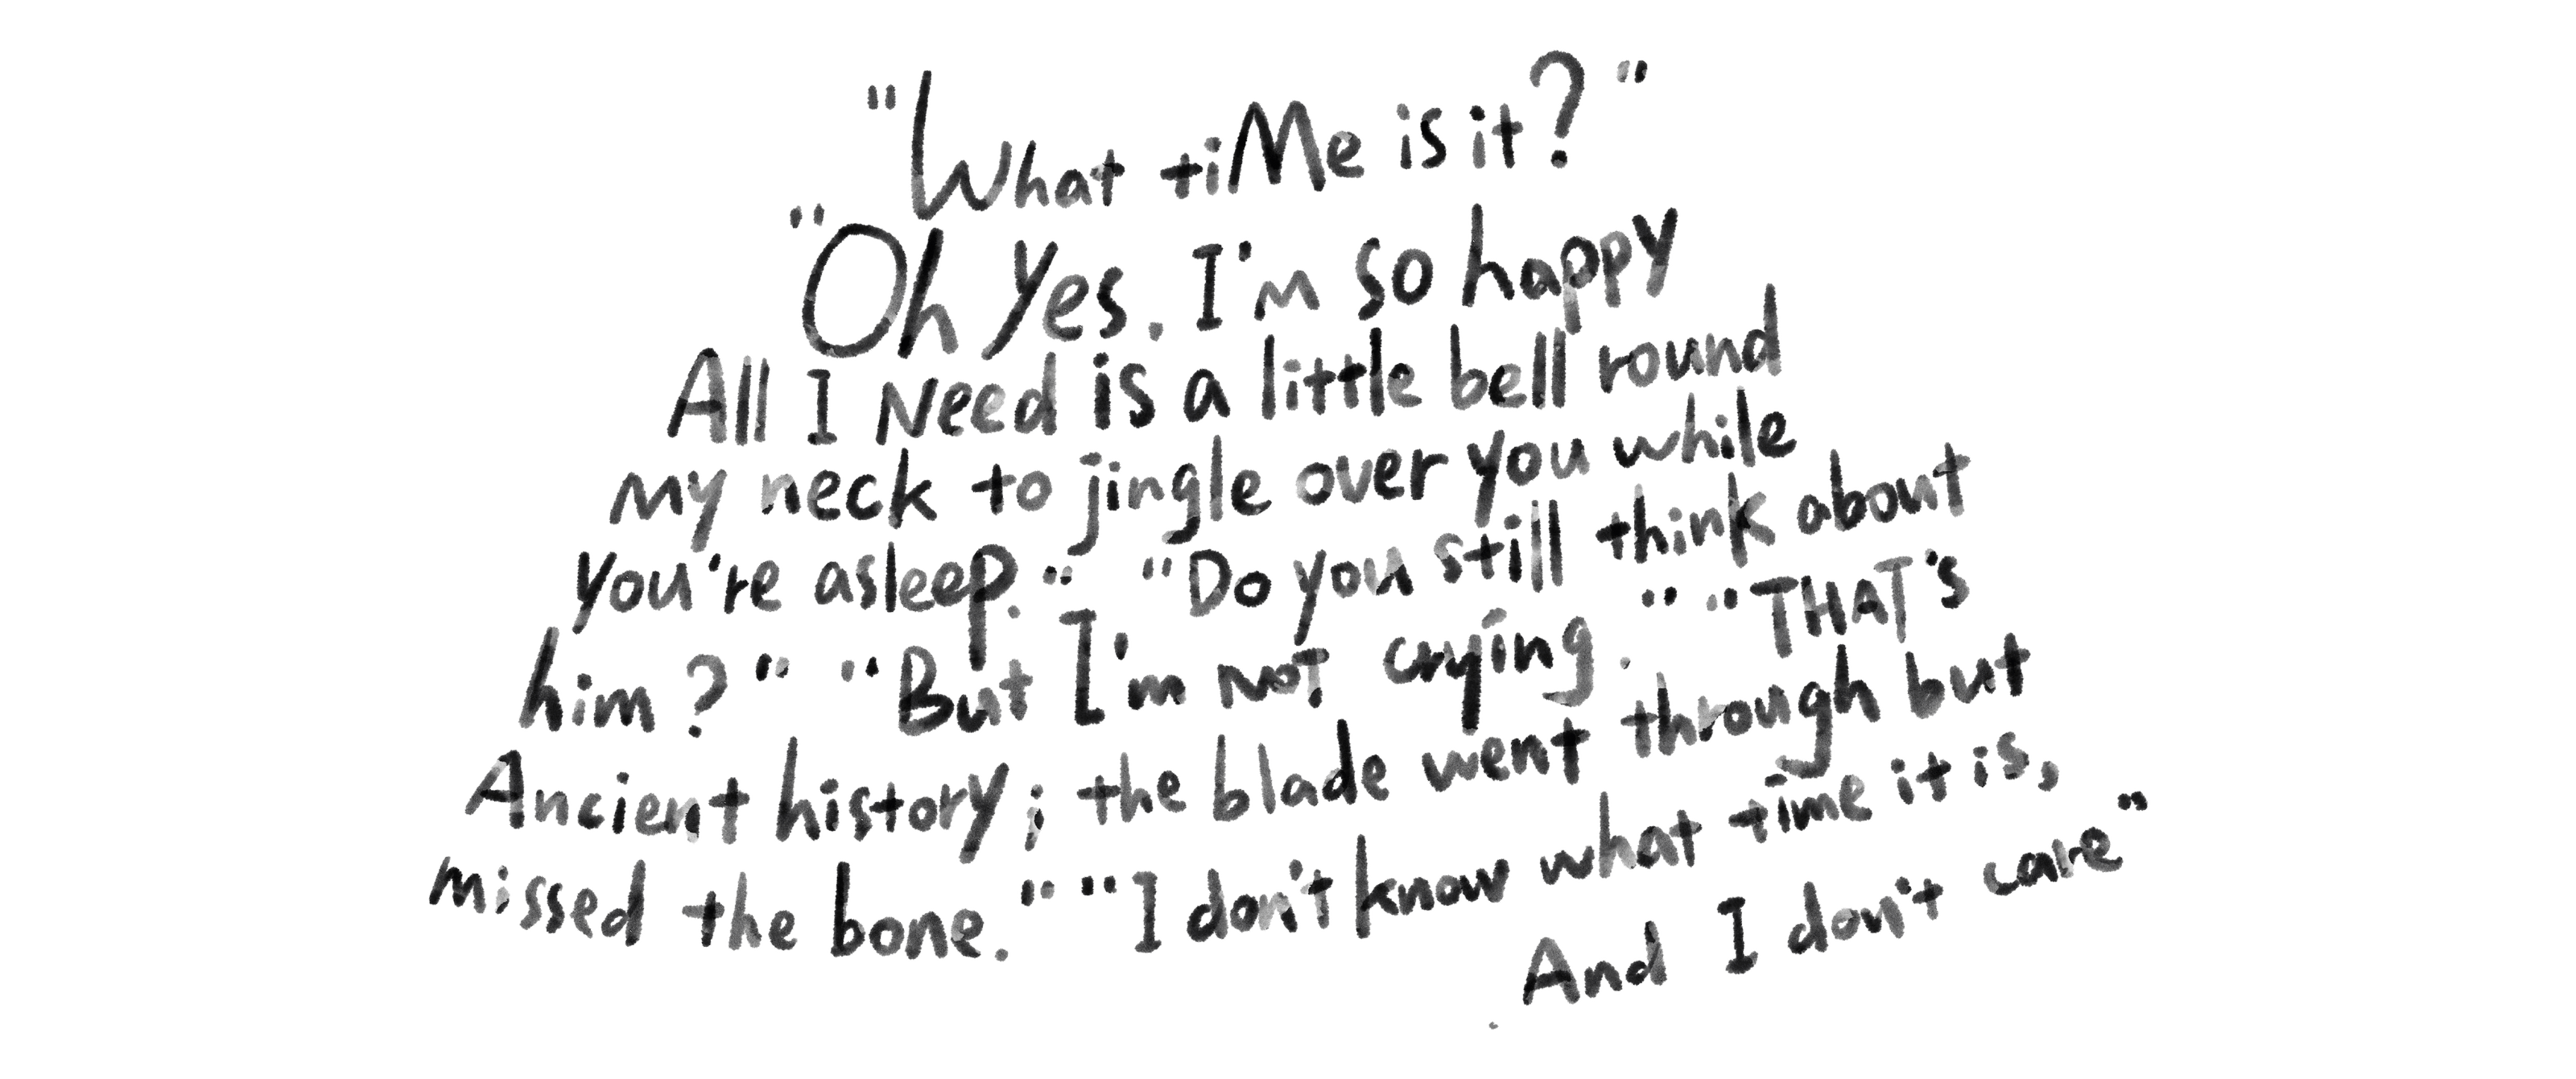 "What tiMe is it?"
"Oh Yes. I'm so happy
All I Need is a little bell round
my neck to jingle over you while
you're asleep." "Do you still think about
him?" "But I'm noT crying." "THAT's
Ancient history; the blade went through but
missed the bone." "I don't know what time it is,
And I don't care"